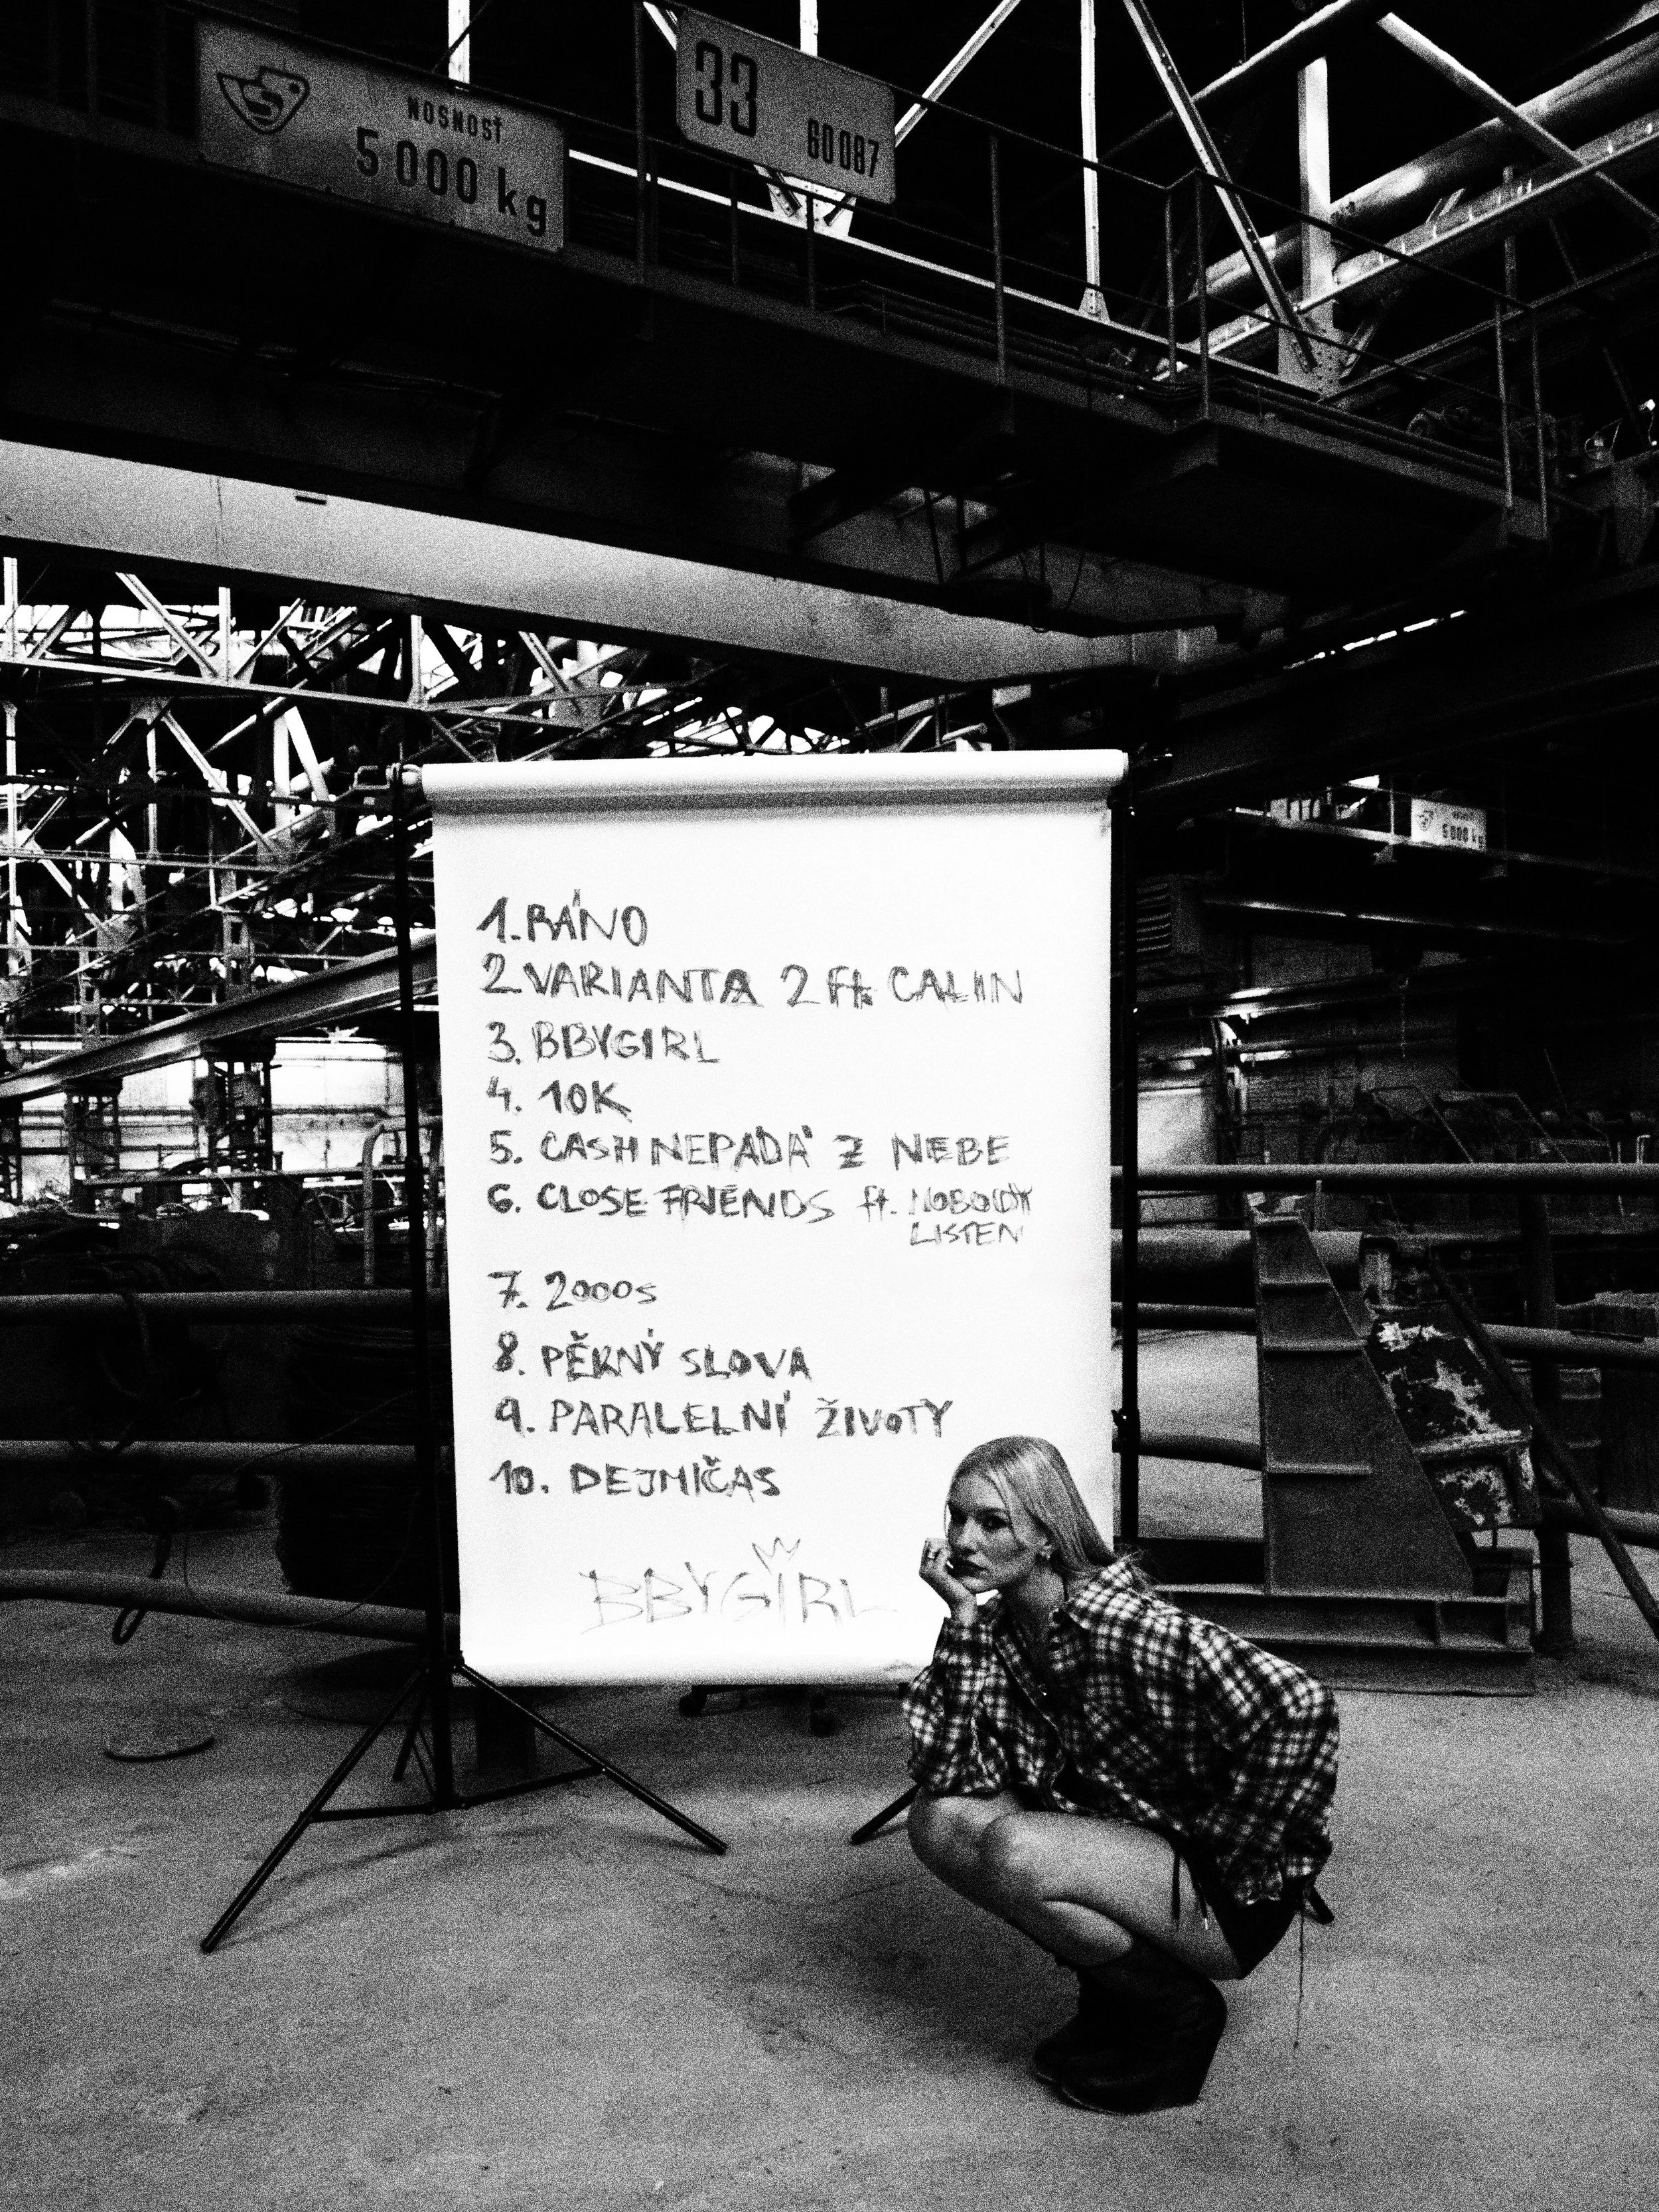 NOSNOSŤ
5 000 kg
33
60 087
5 000 kg
1. RÁNO
2 VARIANTA 2 ft. CALIN
3. BBYGIRL
4. 10K
5. CASH NEPADÁ Z NEBE
6. CLOSE FRIENDS ft. NOBODY
LISTEN
7. 2000s
8. PĚKNÝ SLOVA
9. PARALELNÍ ŽIVOTY
10. DEJMIČAS
BBYGIRL